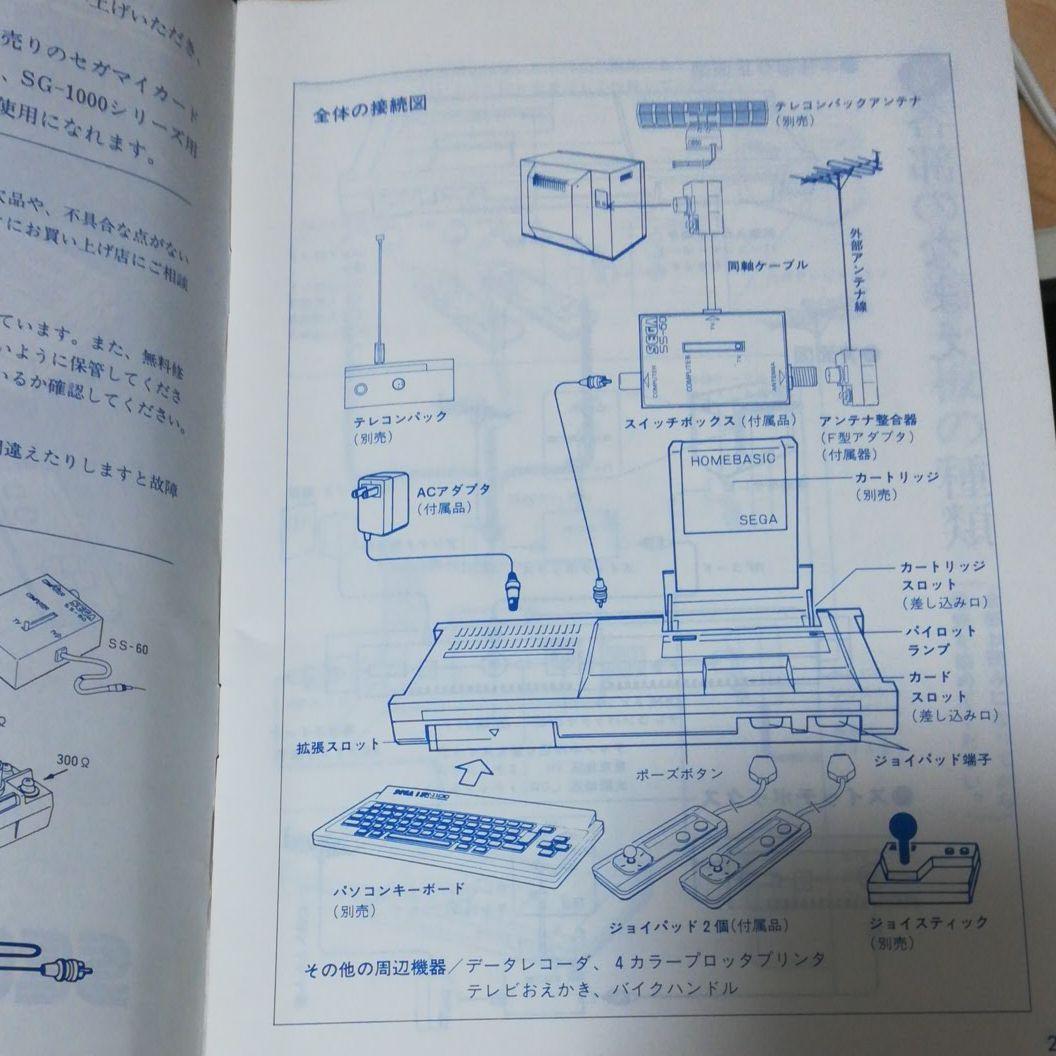 上げいただき、
売りのセガマイカード
、SG-1000シリーズ用
使用になれます。
欠品や、不具合な点がない
にお買い上げ店にご相談
ています。また、無料修
いように保管してくださ
いるか確認してください。
違えたりしますと故障
COMPUTER
TV
SS-60
300Ω
全体の接続図
テレコンパックアンテナ
(別売)
外部アンテナ線
同軸ケーブル
テレコンパック
(別売)
SS-60
SEGA
COMPUTER
COMPUTER
TV
ANTENNA
スイッチボックス(付属品)
アンテナ整合器
(F型アダプタ)
(付属器)
ACアダプタ
(付属品)
HOMEBASIC
SEGA
カートリッジ
(別売)
カートリッジ
スロット
(差し込み口)
パイロット
ランプ
カード
スロット
(差し込み口)
拡張スロット
ポーズボタン
ジョイパッド端子
パソコンキーボード
(別売)
ジョイパッド2個(付属品)
ジョイスティック
(別売)
その他の周辺機器/データレコーダ、4カラープロッタプリンタ
テレビおえかき、バイクハンドル